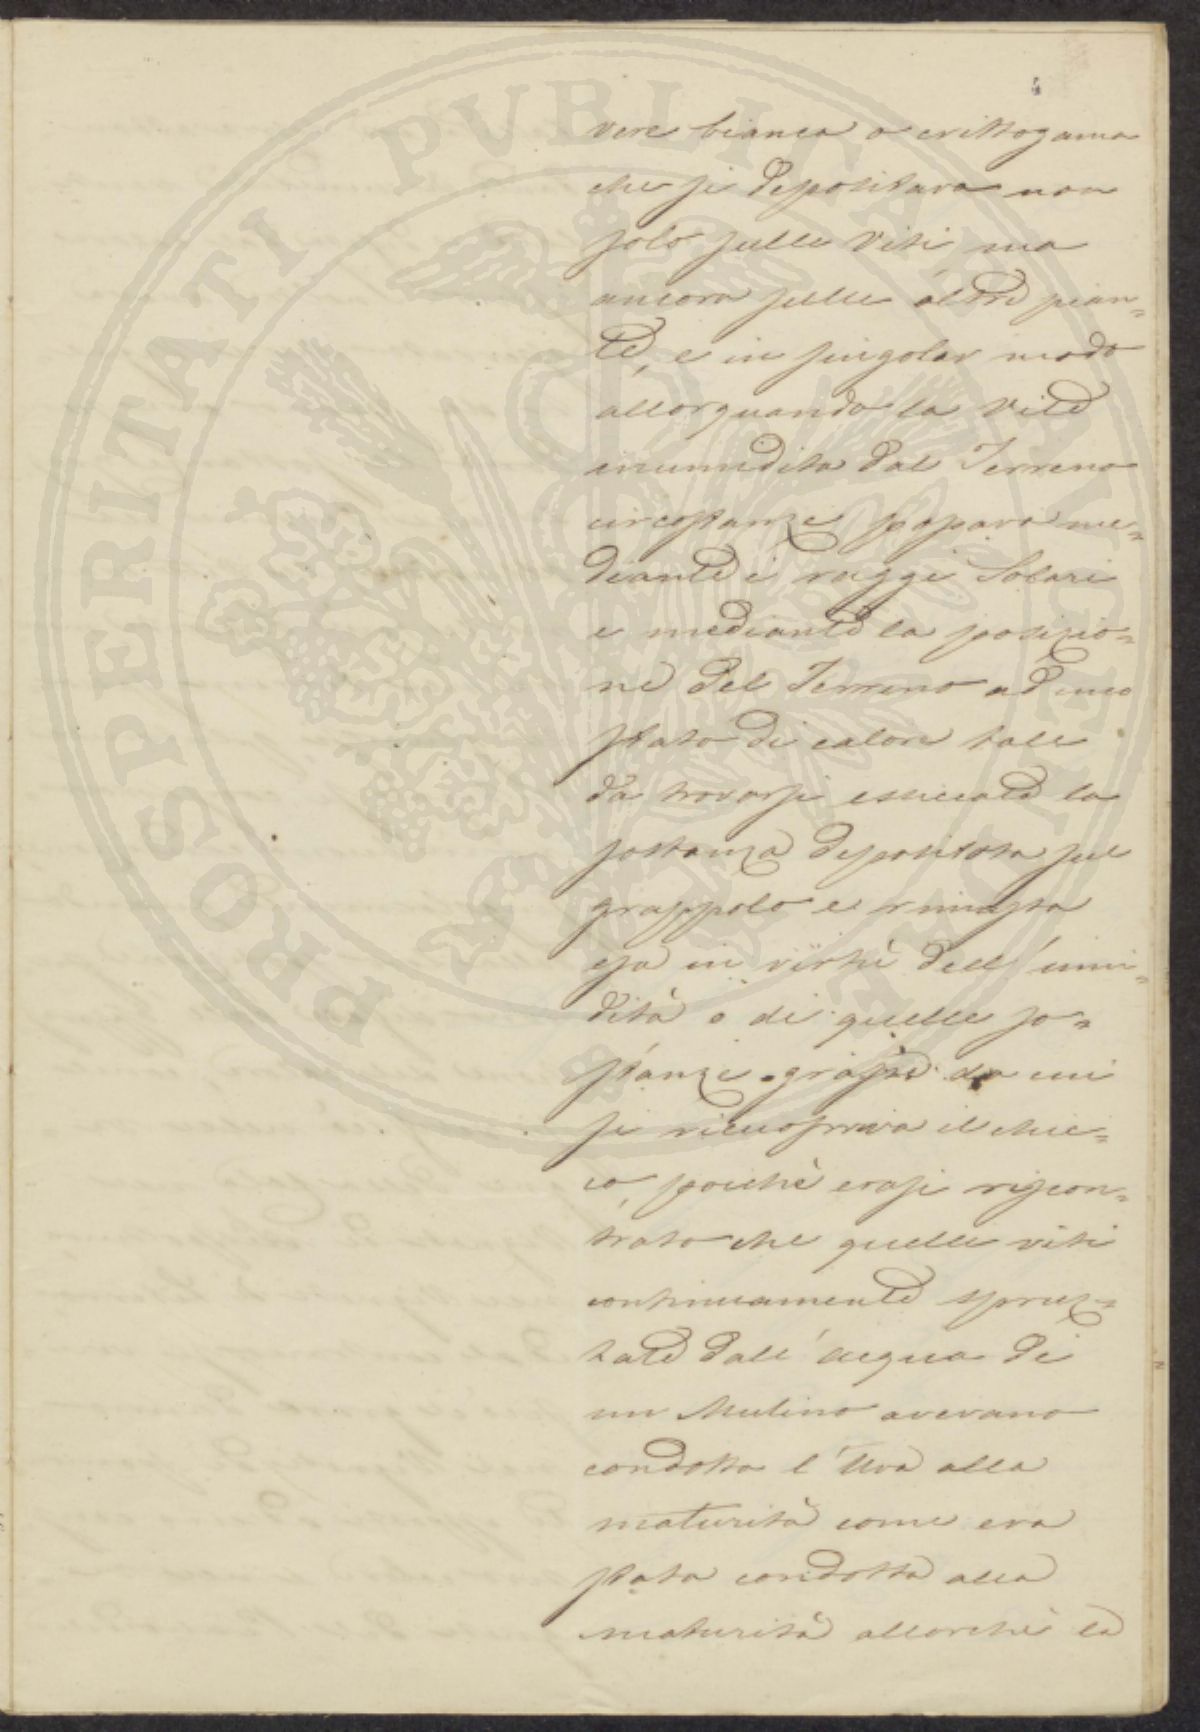 vere bianca o crittogama
che si depositava non
solo sulle Viti ma
ancora sulle altre pian=
te, e in singolar modo
allorquando la Vite
inumidita dal Terreno
circostanze passava me=
diante i raggi Solari
e mediante la posizio=
ne del Terreno ad uno
stato di calore tale
da trovarsi essiccate la
sostanza depositata sul
grappolo e rimasta
essa in virtù dell'umi=
dità o di quelle so=
stanze grasse da cui
si ricuopriva il chic=
co, poichè erasi riscon=
trato che quelle viti
continuamente spruz=
zate dall'acqua di
un Mulino avevano
condotta l'Uva alla
maturità come era
stata condotta alla
maturità allorchè la
PROSPERITATI PVBLICAE AVGENDAE